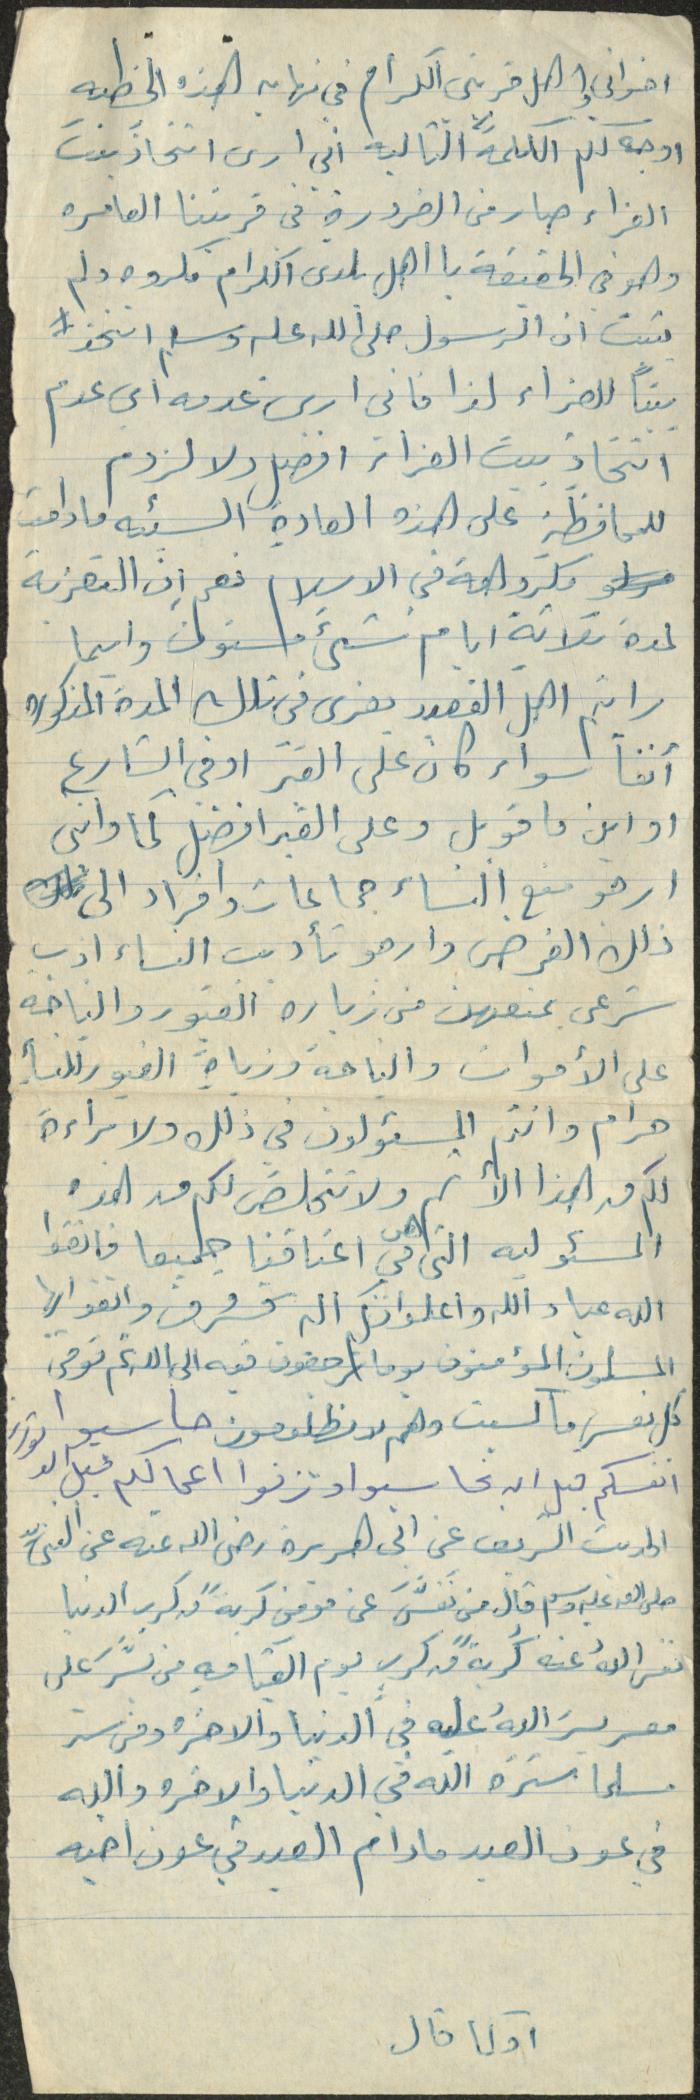 اخواني اهل قريتي الكرام في نهاية هذه الخطبه
اوجه لكم الكلمة التاليه اني ارى اتخاذ بيت
العزاء صار من الضرورة في قريتنا العامره
وهو في الحقيقة يا أهل بلدي الكرام مكروه ولم
يثبت ان الرسول صلى الله عليه وسلم اتخذ
بيتاً للعزاء لذا فاني ارى عدمه اي عدم
اتخاذ بيت العزاء افضل ولا لزوم
للمحافظة على هذه العادة السيئه مادامت
مكروهة في الاسلام نعم ان التعزية
لمدة ثلاثة ايام شيئ مسنون واينما
رايتم اهل الفقيد يعزى في تلك المدة المذكوره
آنفاً سواء كان على القبر او في الشارع
او اين ما قوبل وعلى القبر افضل كما وانني
ارجو منع النساء جماعات وافراد الى
ذلك الغرض وارجو تأديب النساء ادب
شرعي بمنعهن من زيارة القبور والنياحه
على الأموات والنياحة وزيارة القبور للنساء
حرام وانتم المسئولون في ذلك ولا براءة
لكم من هذا الأثم ولا تتخلص لكم من هذه
المسئوليه التي هي في اعناقنا جميعا فاتقوا
الله عباد الله واعلموا انكم اليه تحشرون واتقوا ايها
المسلمون المؤمنون يوما ترجعون فيه الى الله ثم توفى
كل نفس ما كسبت وهم لا يظلمون حاسبوا
انفسكم قبل ان تحاسبوا وتزنوا اعمالكم قبل ان توزن
الحديث الشريف عن ابي هريرة رضي الله عنه عن النبي
صلى الله عليه وسلم قال من نَفَّسَ عن مؤمن كربةً من كرب الدنيا
نفس اللهُ عنه كُربةً من كرب يوم القيامه من يَسَّرَ على
معسر يسرَ اللهُ عليه في الدنيا والاخره ومن ستر
مسلما ستره الله في الدنيا والاخره والله
في عون العبد مادام العبد في عون اخيه
او كما قال